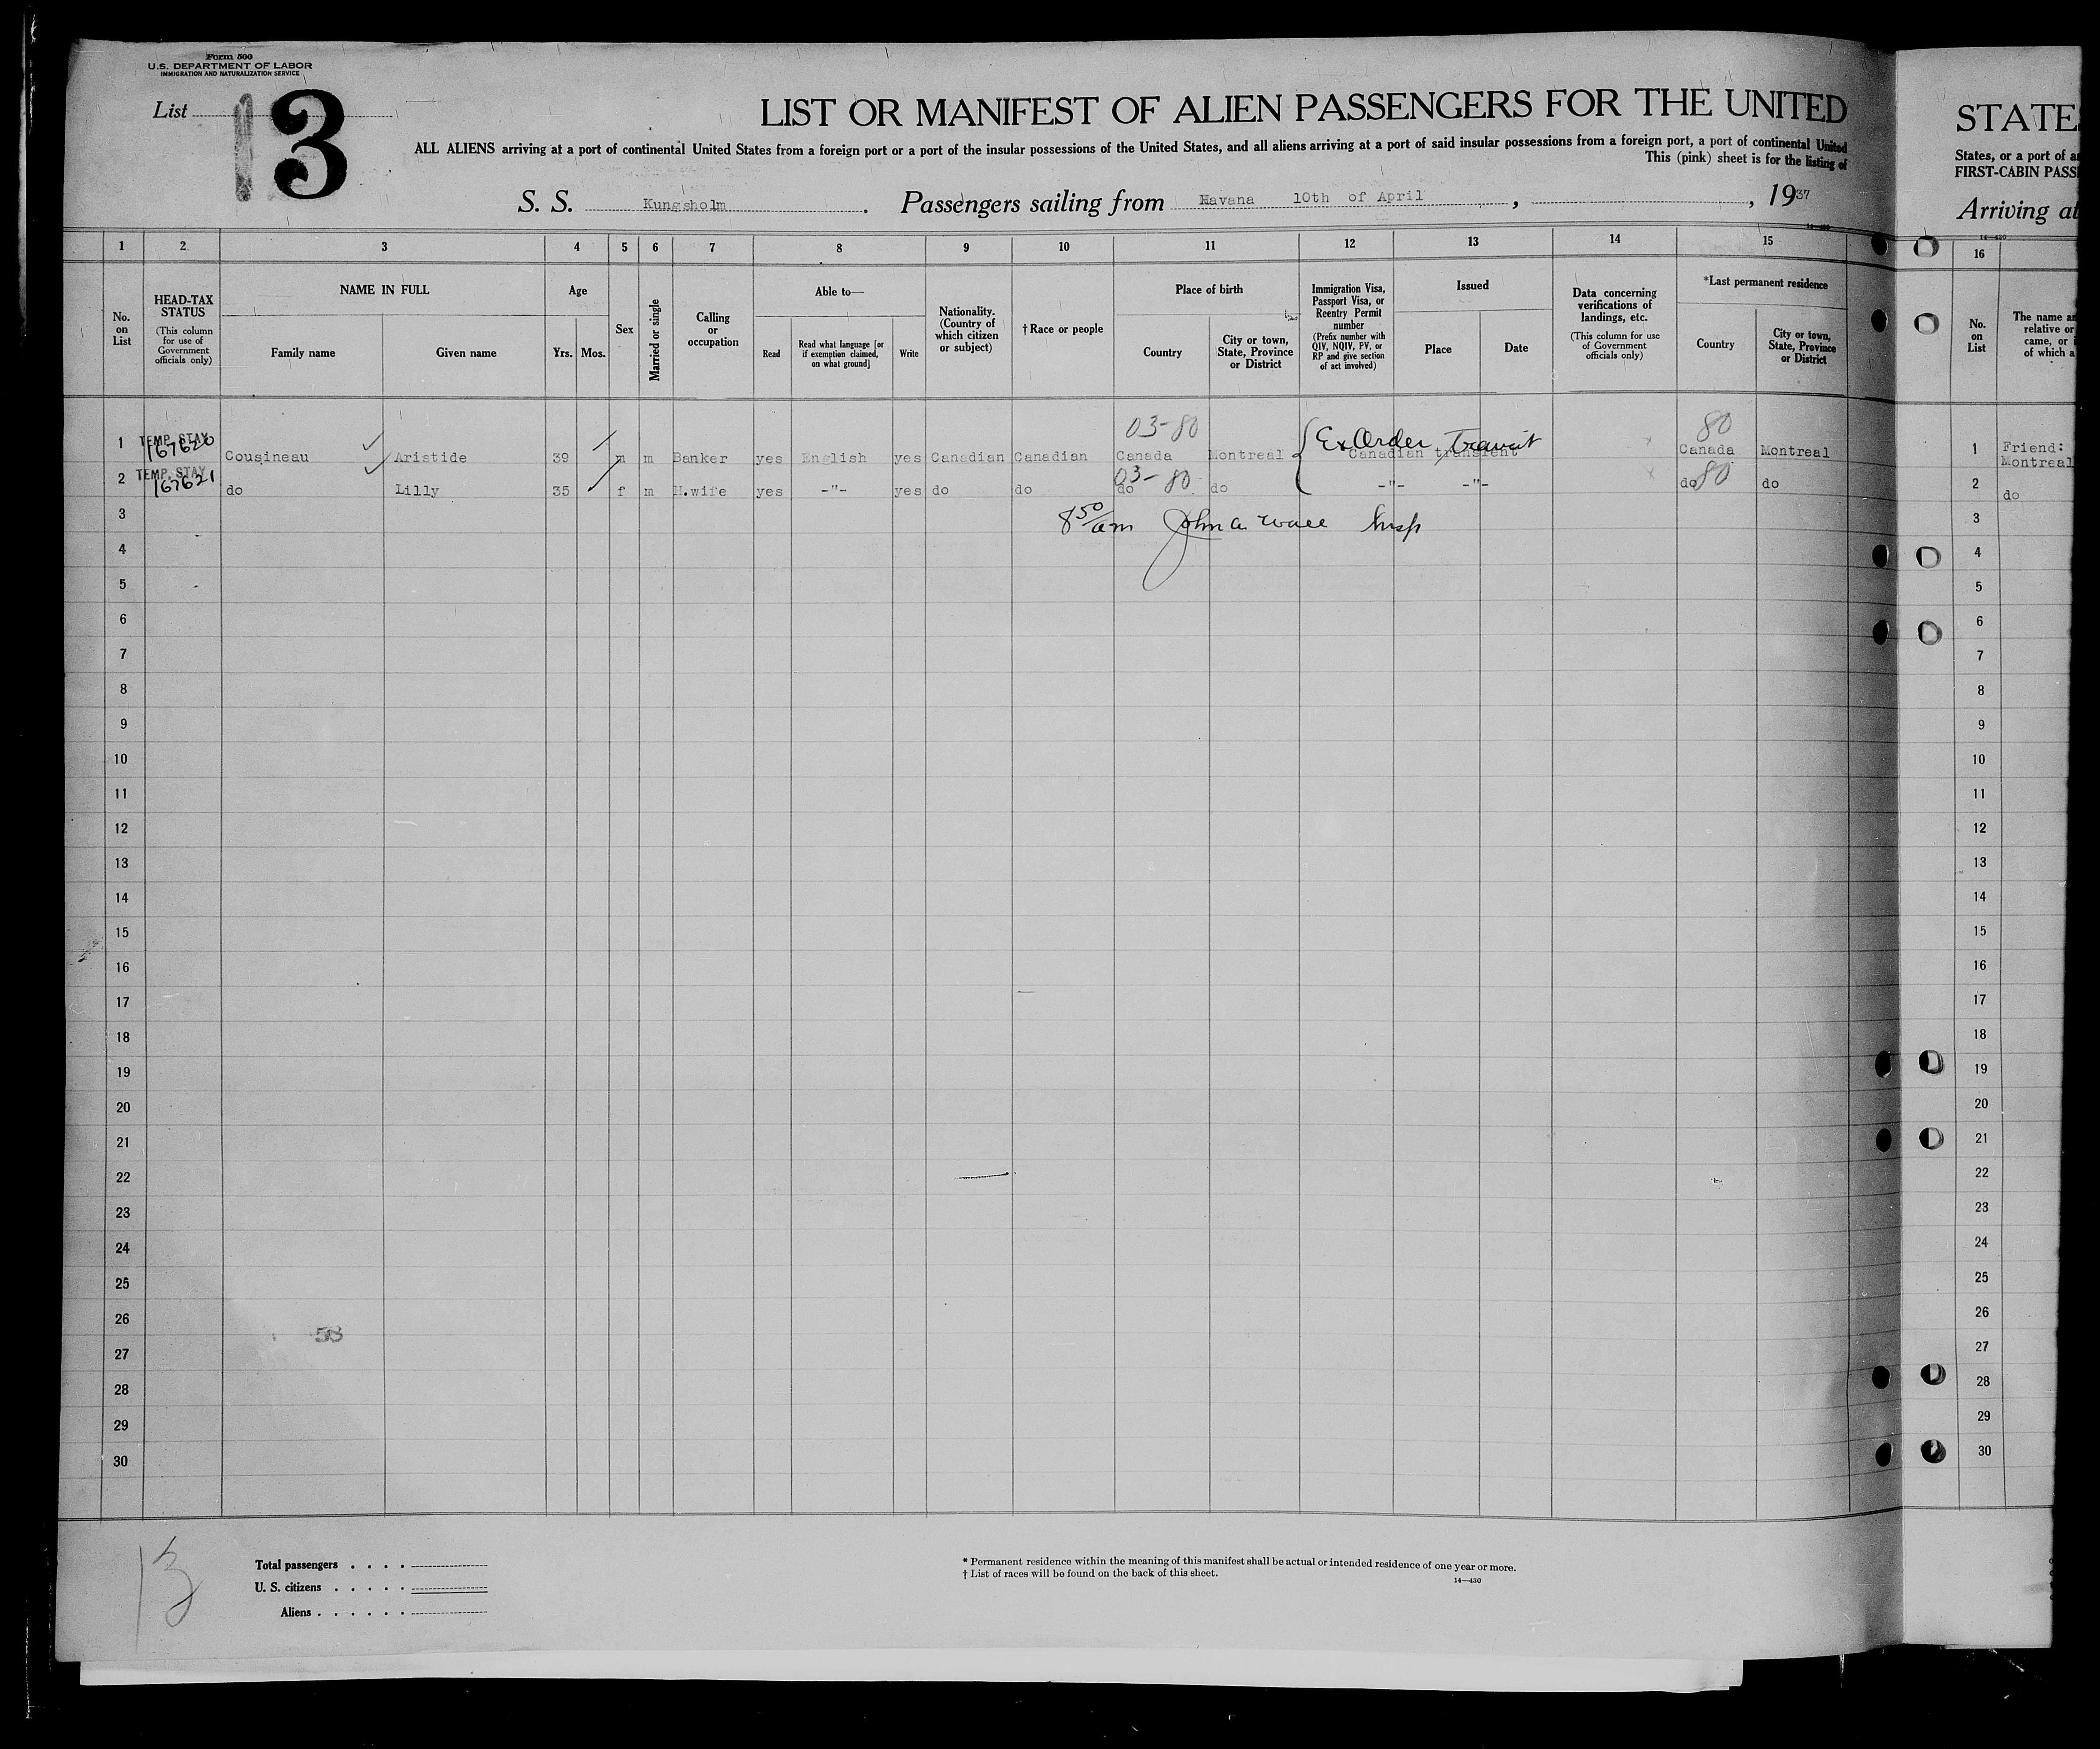 Form 500
U.S. DEPARTMENT OF LABOR
IMMIGRATION AND NATURALIZATION SERVICE
List 3
LIST OR MANIFEST OF ALIEN PASSENGERS FOR THE UNITED
ALL ALIENS arriving at a port of continental United States from a foreign port or a port of the insular possessions of the United States, and all aliens arriving at a port of said insular possessions from a foreign port, a port of continental United
This (pink) sheet is for the listing of
S. S. Kungsholm. Passengers sailing from Havana 10th of April, , 1937
1 2 3 4 5 6 7 8 9 10 11 12 13 14 15
No. on List
HEAD-TAX STATUS (This column for use of Government officials only)
NAME IN FULL
Family name
Given name
Age
Yrs. Mos.
Sex
Married or single
Calling or occupation
Able to—
Read
Read what language [or if exemption claimed, on what ground]
Write
Nationality. (Country of which citizen or subject)
†Race or people
Place of birth
Country
City or town, State, Province or District
Immigration Visa, Passport Visa, or Reentry Permit number (Prefix number with QIV, NQIV, PV, or RP and give section of act involved)
Issued
Place
Date
Data concerning verifications of landings, etc. (This column for use of Government officials only)
*Last permanent residence
Country
City or town, State, Province or District
03-80 Ex Order Transit 80
1 TEMP. STAY 167620 Cousineau Aristide 39 m m Banker yes English yes Canadian Canadian Canada Montreal Canadian transient Canada Montreal
2 TEMP. STAY 167621 do Lilly 35 f m H.wife yes -"- yes do do do 03-80 do -"- -"- do 80 do
3 8 50/am John A. Insp
4
5
6
7
8
9
10
11
12
13
14
15
16
17
18
19
20
21
22
23
24
25
26
58
27
28
29
30
13
Total passengers . . . .
U. S. citizens . . . . .
Aliens . . . . . .
* Permanent residence within the meaning of this manifest shall be actual or intended residence of one year or more.
† List of races will be found on the back of this sheet.
14—430
STATE
States, or a port of
FIRST-CABIN PASS
Arriving at
14—430
16
No. on List
The name
relative or
came, or
of which a
1 Friend:
Montreal
2 do
3
4
5
6
7
8
9
10
11
12
13
14
15
16
17
18
19
20
21
22
23
24
25
26
27
28
29
30